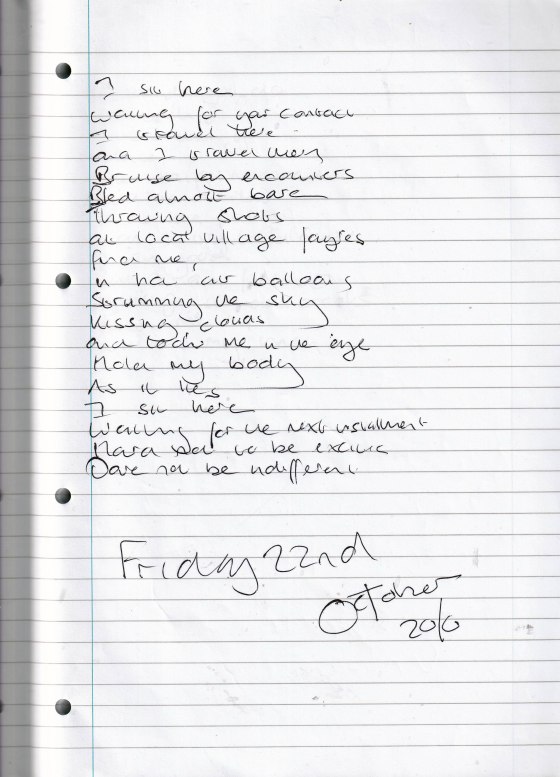 I sit here
Waiting for your contact
I travel here
and I travel there
Bruise by encounters
Bled almost bare
Throwing shots
at local village fayres
Find me,
in hot air balloons
Strumming the sky
Kissing clouds
and me in the eye
Hold my body
As it lies
I sit here
Waiting for the next installment
to be
Dare not be indifferent
Friday 22nd
October
2010